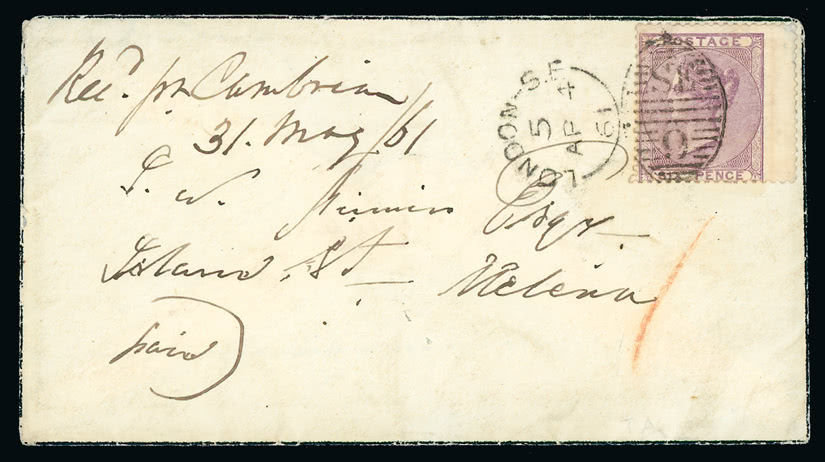 POSTAGE
Recd. pr Cambrian
31. May /61
LONDON-S.E
5
AP 4
61
9
SIX PENCE
J. W. Esqr.
Island St Helena
paid